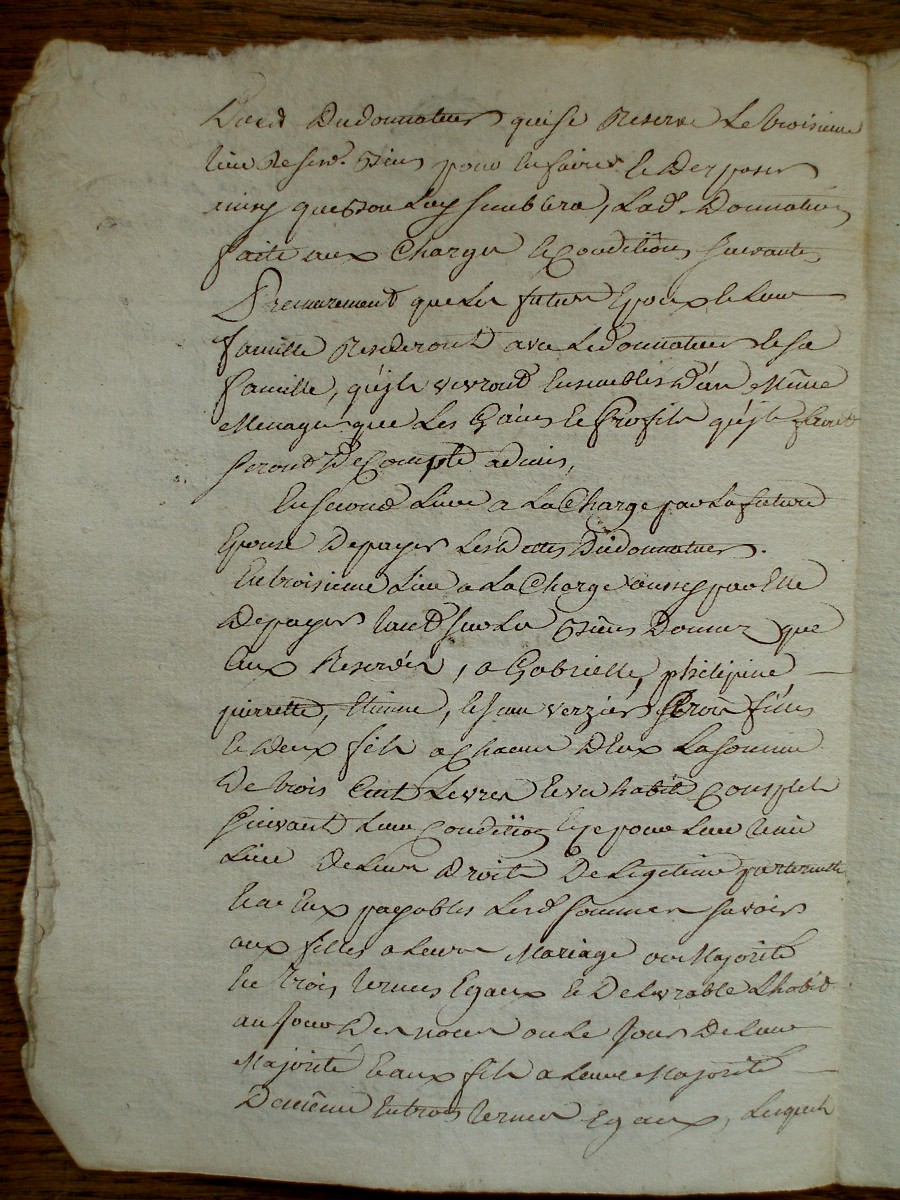 Dud. Dudonnateur quise Reserve Le troisieme
de ses. Biens pour en faire et Disposer
ainsy quebon Luy semblera, Lad. Donnation
faite aux Charges et Conditions suivantes
Premierement que Les futurs Epoux et Leur
famille Resideront avec Ledonnateur et Sa
famille, quyls vivront Ensembles D'un Même
Menage que Les Gains et Profits quyls feront
seront De Compte admis,
En second Lieu a La Charge par La future
Epouse De payer Les Dettes Dudonnateur.
En troisieme Lieu a La Charge aussy par Elle
De payer tant sur Les Biens Donnez que
aux Reservés, a Gabrielle, philipine
pierrette, Etienne, et Jean verzier trois filles
et Deux fils a Chacun D'Eux La somme
De trois Cent Livres et un habit Complet
suivant Leur Condition et ce pour Leur tenir
Lieu De Leurs Droits De Legitime paternelle
et a Eux payables Lesd. sommes savoir
aux filles a Leurs Mariage ou Majorité
En trois termes Egaux et Delivrable L'habit
au Jour Des noces ou Le Jour De Leur
Majorité et aux fils a Leure Majorité
De même En trois termes Egaux, Lesquels